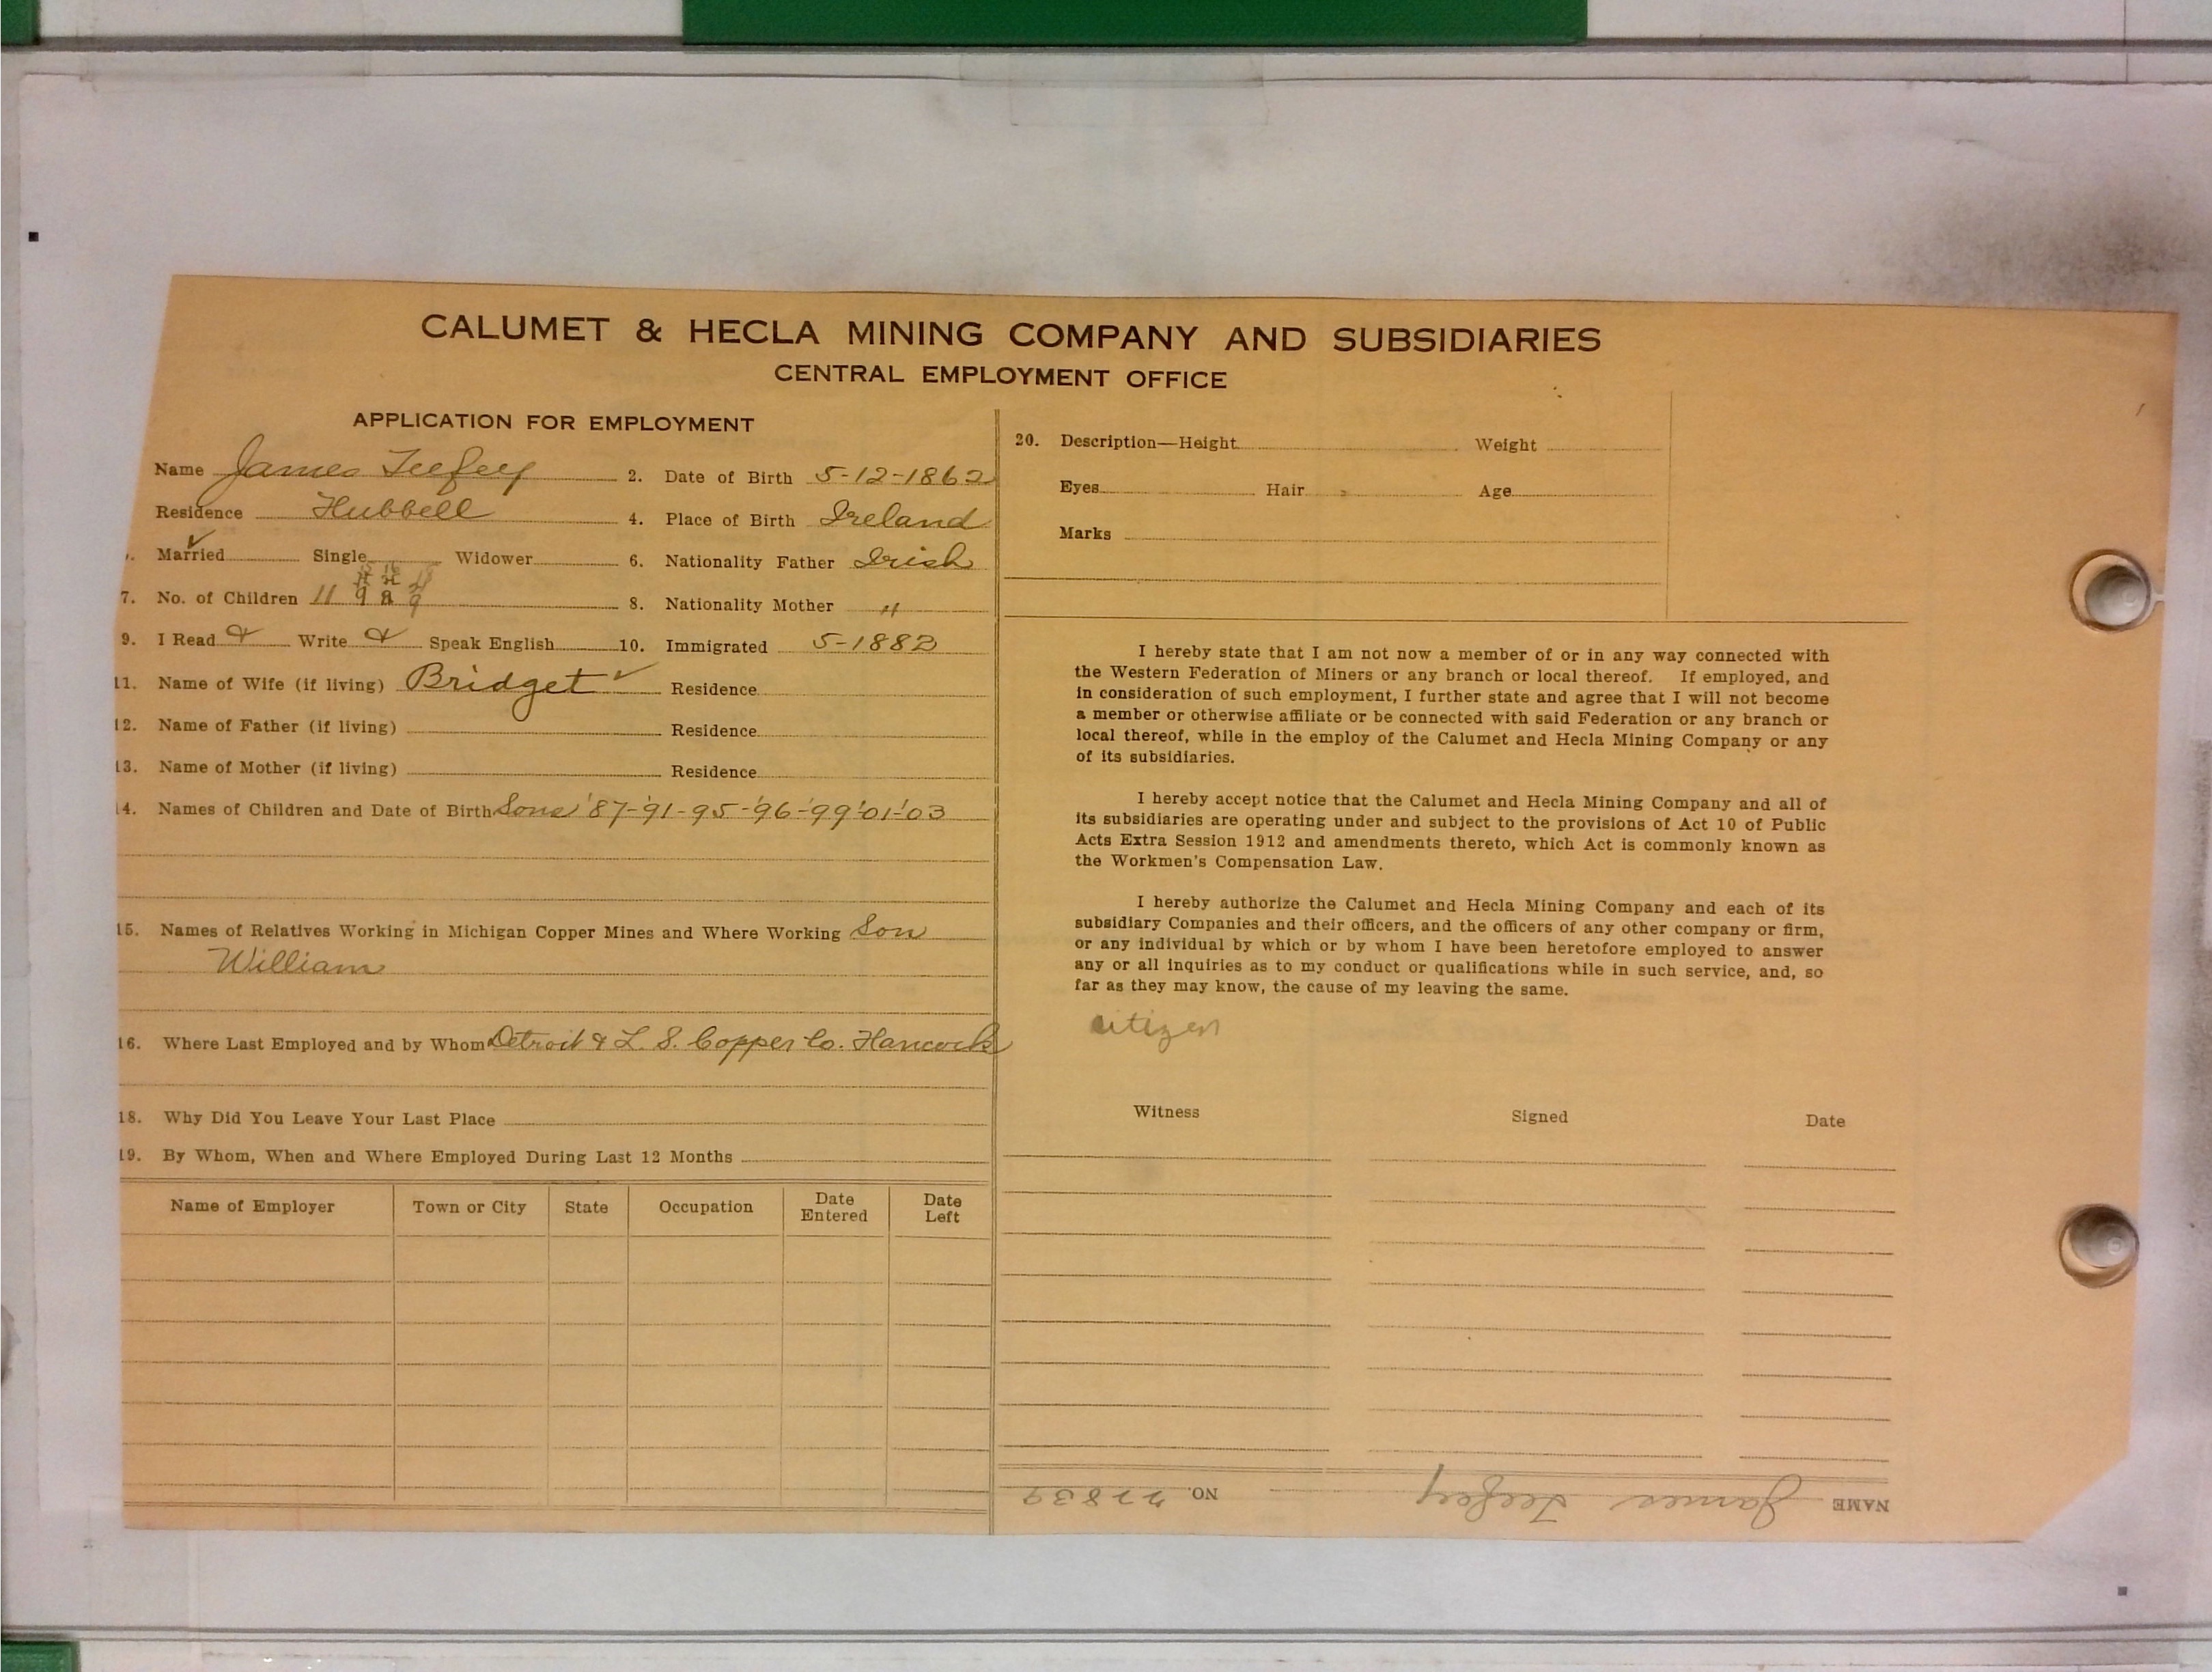 CALUMET & HECLA MINING COMPANY AND SUBSIDIARIES
CENTRAL EMPLOYMENT OFFICE
APPLICATION FOR EMPLOYMENT
Name James Teefey 2. Date of Birth 5-12-1862
Residence Hubbell 4. Place of Birth Ireland
Married ✓ Single Widower 6. Nationality Father Irish
7. No. of Children 11 8. Nationality Mother "
9. I Read Write Speak English 10. Immigrated 5-1882
11. Name of Wife (if living) Bridget ✓ Residence
12. Name of Father (if living) Residence
13. Name of Mother (if living) Residence
14. Names of Children and Date of Birth Sons '87-'91-95-'96-'99'01-'03
15. Names of Relatives Working in Michigan Copper Mines and Where Working Son
William
16. Where Last Employed and by Whom Detroit & L. S. Copper Co. Hancock
18. Why Did You Leave Your Last Place
19. By Whom, When and Where Employed During Last 12 Months
Name of Employer Town or City State Occupation Date Entered Date Left
20. Description—Height Weight
Eyes Hair Age
Marks
I hereby state that I am not now a member of or in any way connected with
the Western Federation of Miners or any branch or local thereof. If employed, and
in consideration of such employment, I further state and agree that I will not become
a member or otherwise affiliate or be connected with said Federation or any branch or
local thereof, while in the employ of the Calumet and Hecla Mining Company or any
of its subsidiaries.
I hereby accept notice that the Calumet and Hecla Mining Company and all of
its subsidiaries are operating under and subject to the provisions of Act 10 of Public
Acts Extra Session 1912 and amendments thereto, which Act is commonly known as
the Workmen's Compensation Law.
I hereby authorize the Calumet and Hecla Mining Company and each of its
subsidiary Companies and their officers, and the officers of any other company or firm,
or any individual by which or by whom I have been heretofore employed to answer
any or all inquiries as to my conduct or qualifications while in such service, and, so
far as they may know, the cause of my leaving the same.
citizen
Witness Signed Date
NAME James Teefey NO. 22839